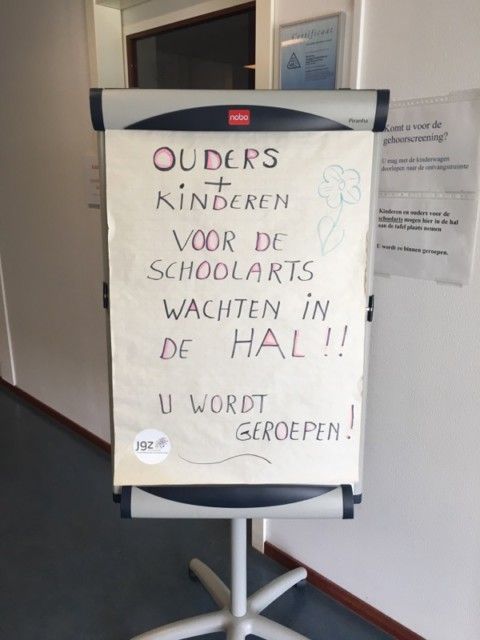 Certificaat
nobo
Piranha
OUDERS
+
KINDEREN
VOOR DE
SCHOOLARTS
WACHTEN IN
DE HAL!!
U WORDT
GEROEPEN!
jgz
Komt u voor de
gehoorscreening?
U mag met de kinderwagen
doorlopen naar de ontvangstruimte
Kinderen en ouders voor de
schoolarts mogen hier in de hal
aan de tafel plaats nemen
U wordt zo binnen geroepen.